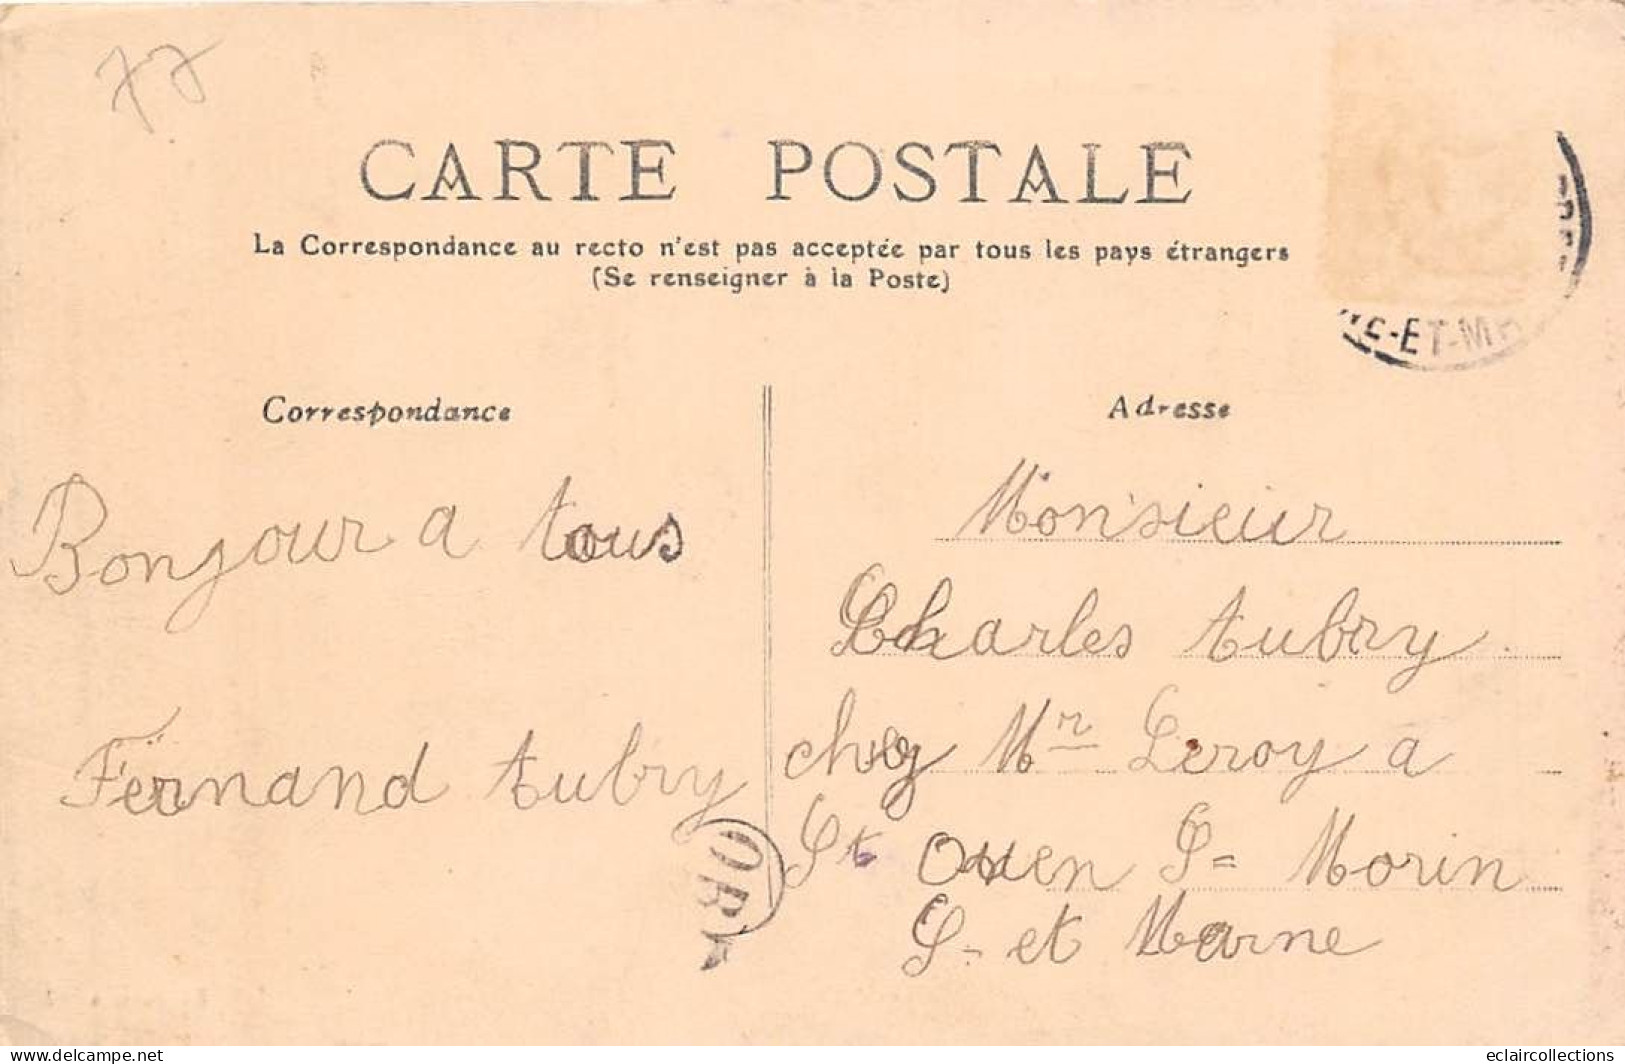 77
CARTE POSTALE
La Correspondance au recto n'est pas acceptée par tous les pays étrangers
(Se renseigner à la Poste)
-ET-M
Correspondance
Adresse
Bonjour a tous
Fernand Aubry
Monsieur
Charles Aubry
chez Mr Leroy a
St Ouen S= Morin
S- et Marne
OR
www.delcampe.net
eclaircollections